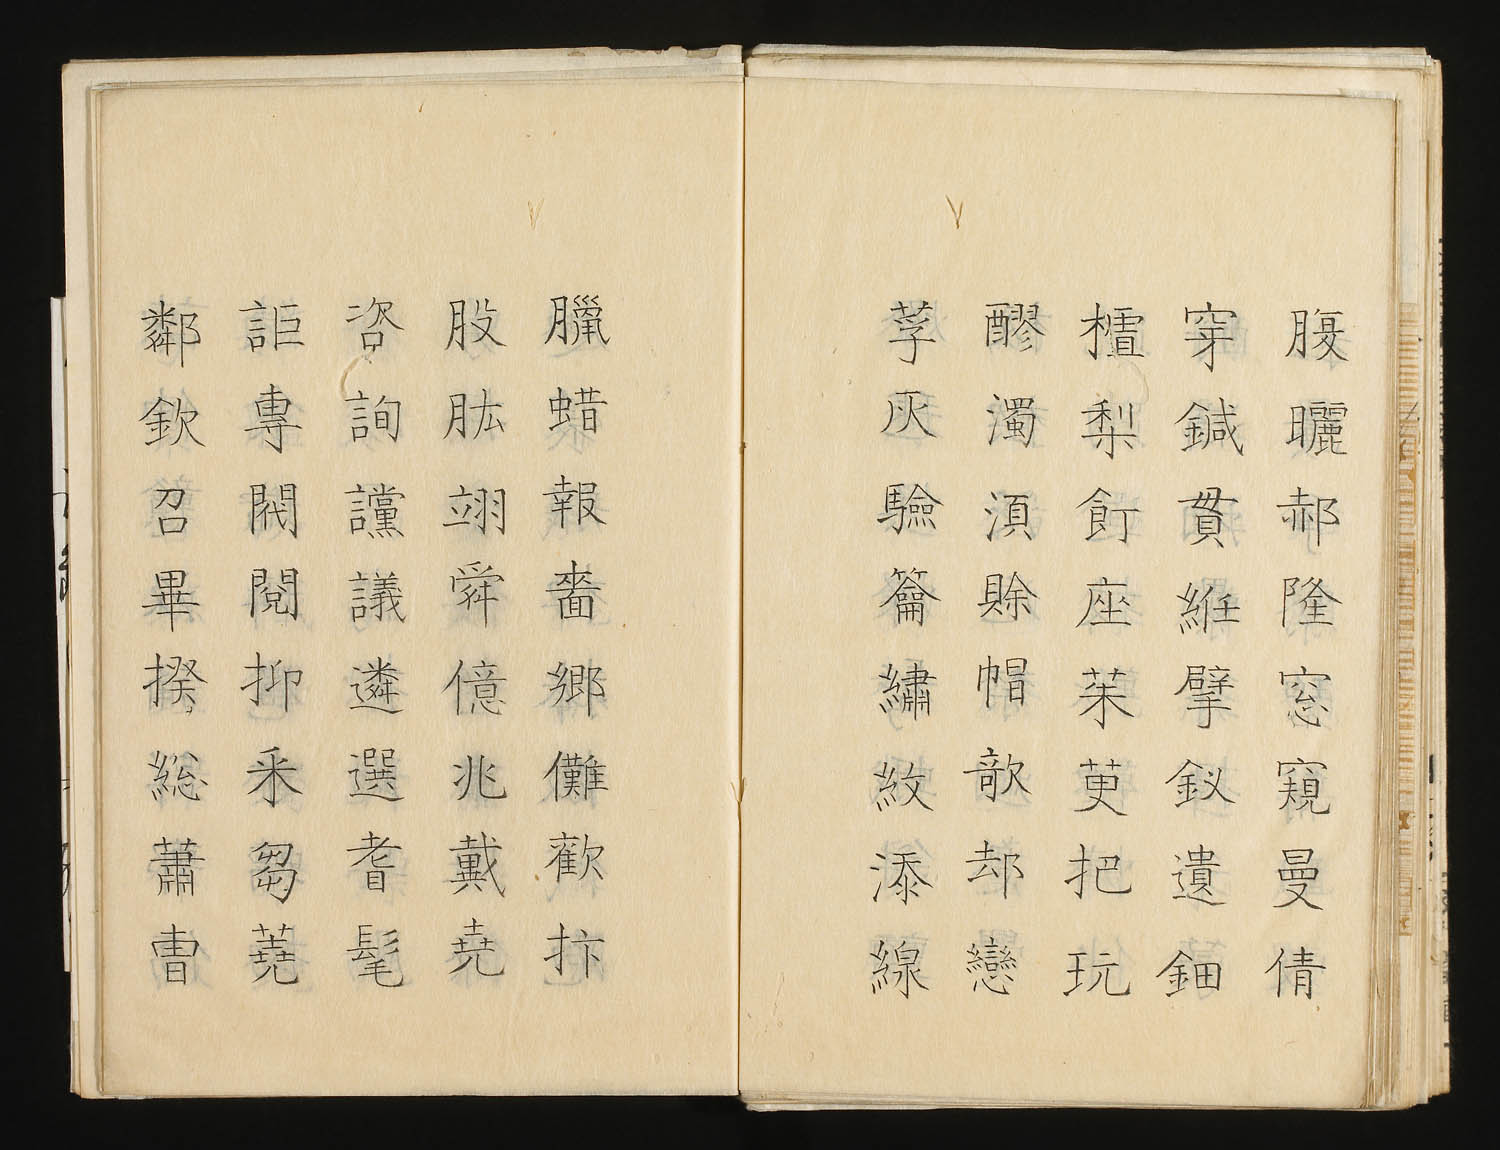 腹曬郝隆窓窺曼倩
穿鍼貫紝擘釵遺鈿
樝梨飣座茱萸把玩
醪濁須賖帽欹却戀
莩灰驗籥繡紋添線
臘蜡報嗇鄉儺歡抃
股肱翊舜億兆戴堯
咨詢讜議遴選耆髦
詎專閥閱抑采芻蕘
鄰欽召畢揆総蕭曺